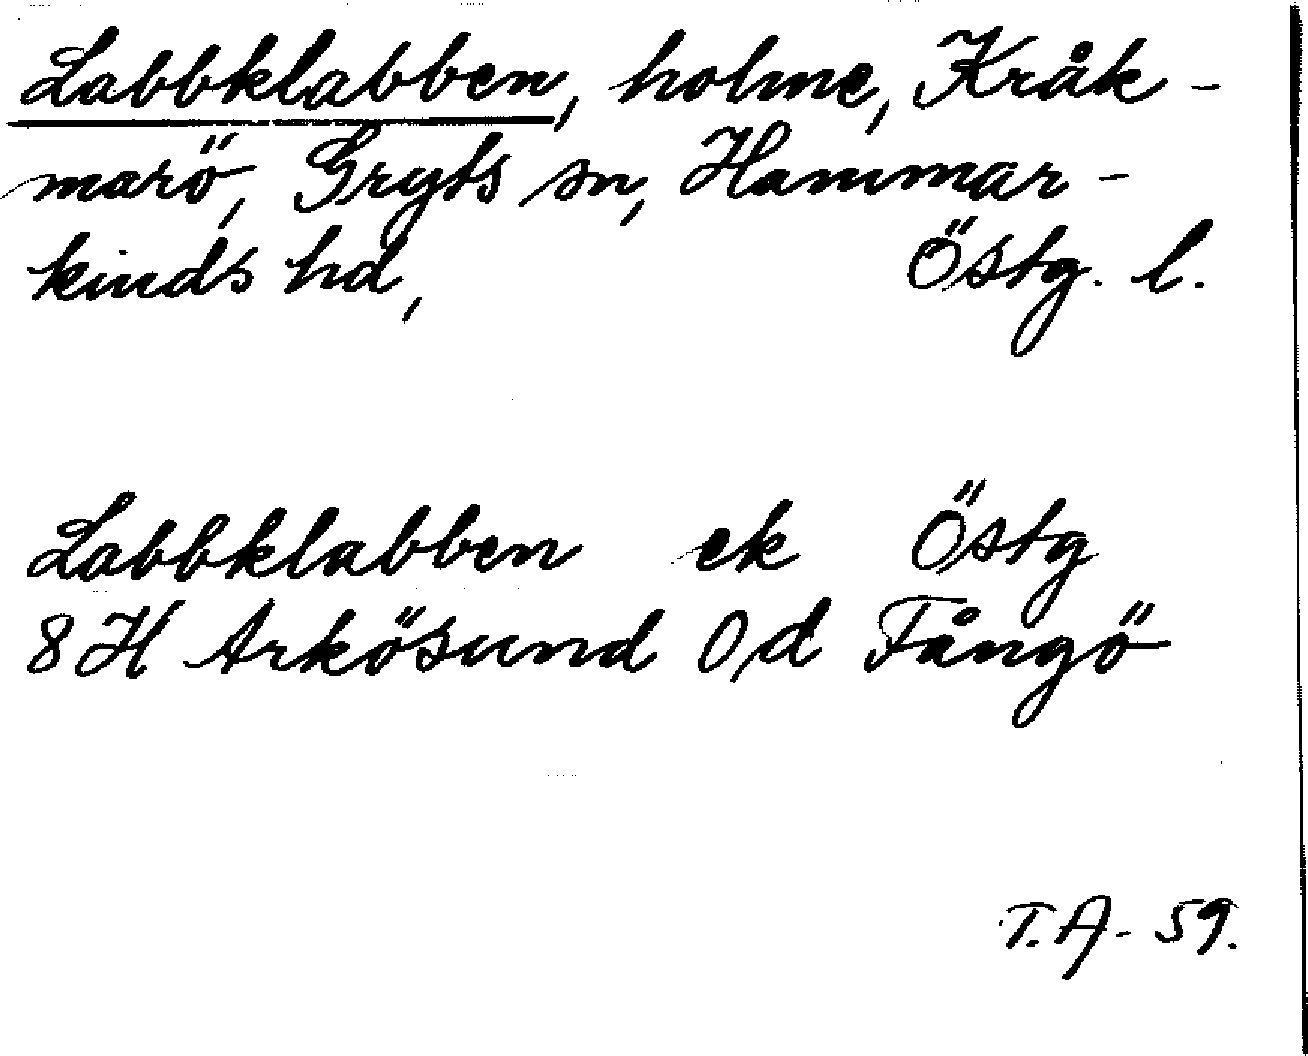 Labbklabben, holme, Kråk-
marö, Gryts sn, Hammar-
kinds hd, Östg. l.
Labbklabben ek Östg
8H Arkösund 0,d Fångö
T.A- 59.